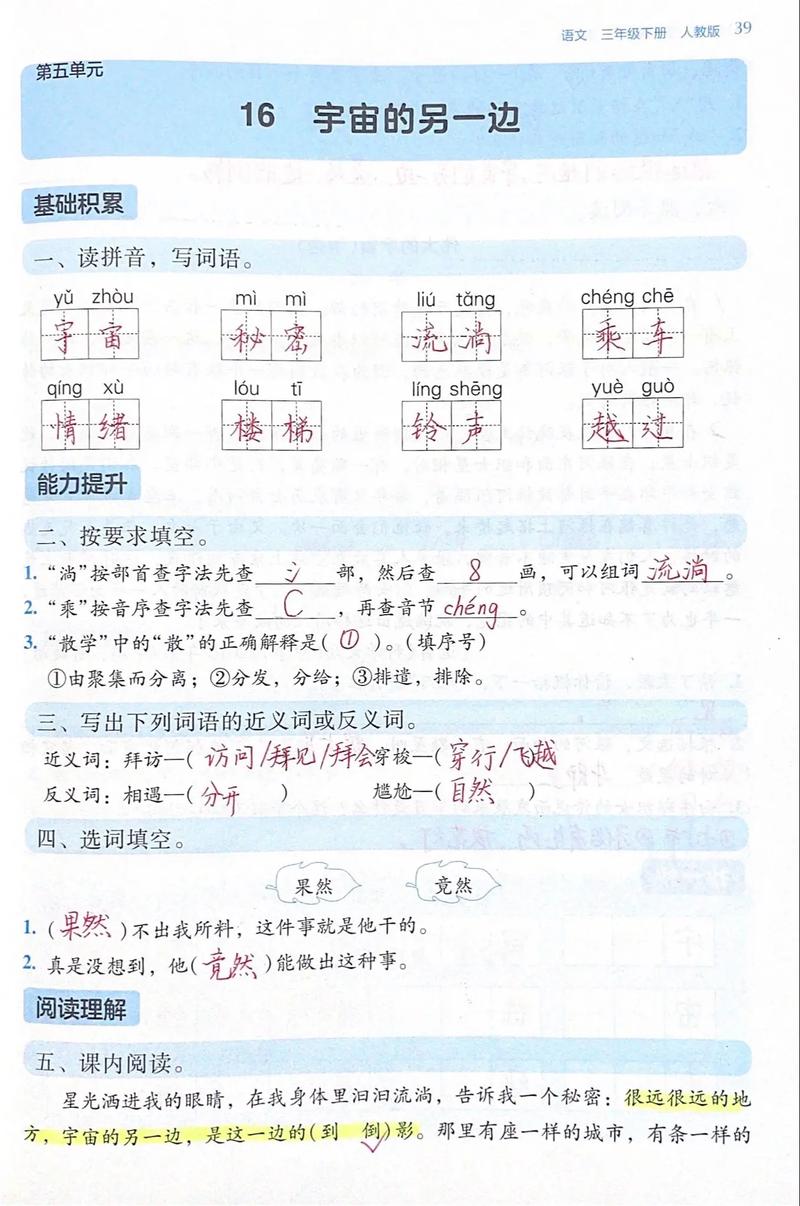 语文 三年级下册 人教版 39
第五单元
16 宇宙的另一边
基础积累
一、读拼音，写词语。
yǔ zhòu mì mì liú tǎng chéng chē
宇宙 秘密 流淌 乘车
qíng xù lóu tī líng shēng yuè guò
情绪 楼梯 铃声 越过
能力提升
二、按要求填空。
1. “淌”按部首查字法先查 氵 部，然后查 8 画，可以组词 流淌 。
2. “乘”按音序查字法先查 C ，再查音节 chéng 。
3. “散学”中的“散”的正确解释是( ① )。(填序号)
①由聚集而分离；②分发，分给；③排遣，排除。
三、写出下列词语的近义词或反义词。
近义词：拜访—( 访问/拜见/拜会 穿梭—( 穿行/飞越
反义词：相遇—( 分开 ) 尴尬—( 自然 )
四、选词填空。
果然 竟然
1. ( 果然 )不出我所料，这件事就是他干的。
2. 真是没想到，他( 竟然 )能做出这种事。
阅读理解
五、课内阅读。
星光洒进我的眼睛，在我身体里汩汩流淌，告诉我一个秘密：很远很远的地
方，宇宙的另一边，是这一边的(到 倒)影。那里有座一样的城市，有条一样的